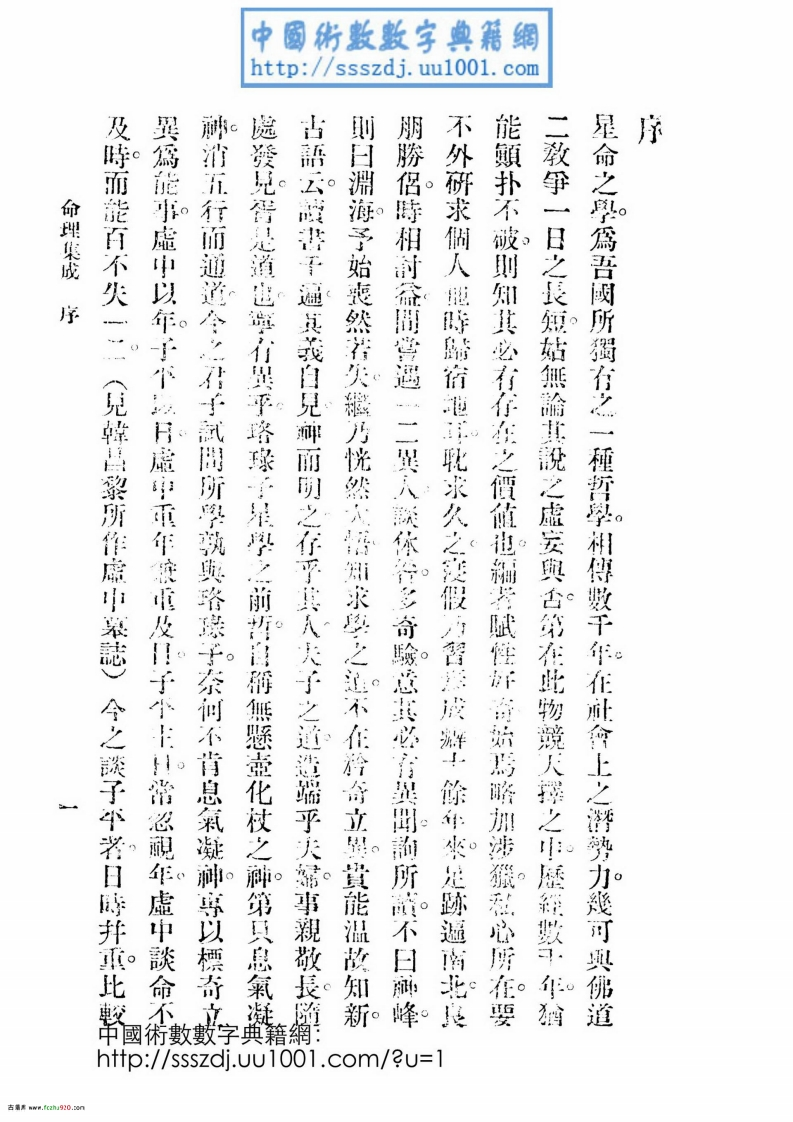 中國術數數字典籍網
http://ssszdj.uu1001.com
序
星命之學。爲吾國所獨有之一種哲學。相傳數千年。在社會上之潛勢力。幾可與佛道
二敎爭一日之長短。姑無論其說之虛妄與否。第在此物競天擇之中。歷經數千年。猶
能顚扑不破。則知其必有存在之價値也。編者賦性好奇。始焉略加涉獵。私心所在。要
不外硏求個人他時歸宿地耳。耽求久之。寖假乃習與成癖。十餘年來。足跡遍南北。良
朋勝侶。時相討益。間嘗遇一二異人。談休咎。多奇驗。意其必有異聞。詢所讀。不曰神峰。
則曰淵海。予始喪然若失。繼乃恍然大悟。知求學之道。不在矜奇立異。貴能温故知新。
古語云。讀書千遍。其義自見。神而明之。存乎其人。夫子之道。造端乎夫婦。事親敬長。隨
處發見。胥是道也。寧有異乎。珞琭子星學之前哲。自稱無懸壺化杖之神。第只息氣凝
神。消五行而通道。今之君子。試問所學孰與珞琭子。奈何不肯息氣凝神。專以標奇立
異爲能事。虛中以年。子平以日。虛中重年。兼重及日。子平主日。常忽視年。虛中談命不
及時。而能百不失一二。(見韓昌黎所作虛中墓誌)今之談子平者。日時幷重。比較
命理集成　序
一
中國術數數字典籍網:
http://ssszdj.uu1001.com/?u=1
www.fczhu920.com